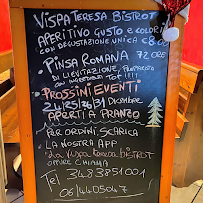 Vispa Teresa Bistrot
Aperitivo gusto e colori
con degustazione unica €8.00
Pinsa Romana 72 ore
di lievitazione, preparata
con ingredienti top !!!!
Prossimi eventi
24/25/26/31 Dicembre
aperti a pranzo
per ordini scarica
la nostra app
"La vispa teresa bistrot"
oppure chiama
Tel 3483851001
06/4405047